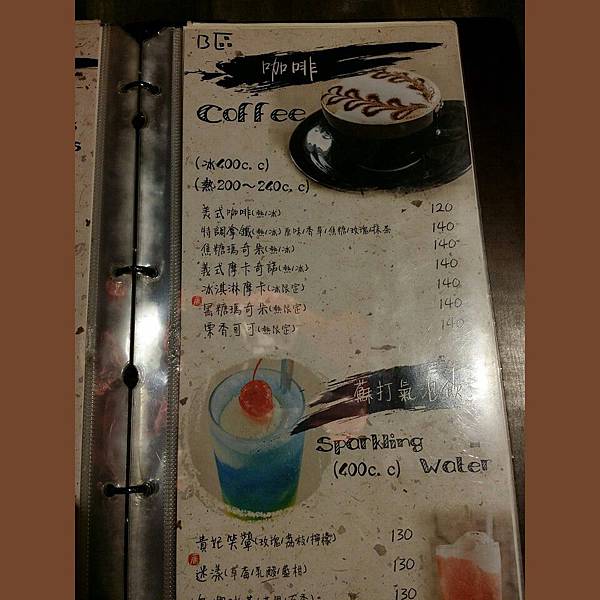 B區
咖啡
Coffee
(冰400c.c)
(熱200~240c.c)
美式咖啡(熱/冰) 120
特調拿鐵(熱/冰)原味/香草/焦糖/玫瑰/抹茶 140
焦糖瑪奇朵(熱/冰) 140
義式摩卡奇諾(熱/冰) 140
冰淇淋摩卡(冰限定) 140
黑糖瑪奇朵(熱限定) 140
栗香可可(熱限定) 140
蘇打氣泡飲
Sparkling
(400c.c) Water
貴妃笑顰(玫瑰/荔枝/檸檬) 130
迷漾(草莓/乳酸/藍柑) 130
130